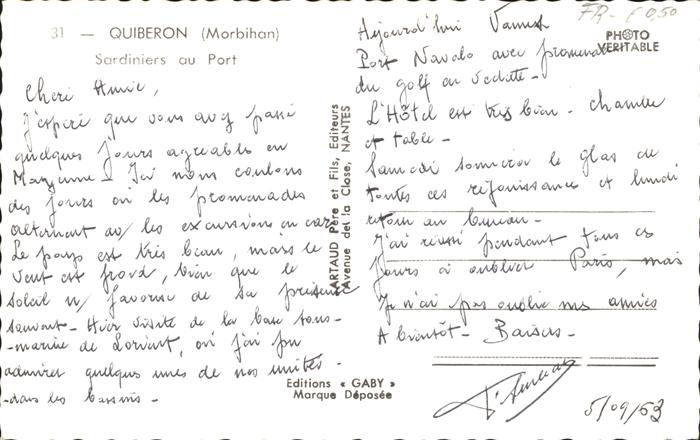 31 — QUIBERON (Morbihan)
Sardiniers au Port
Cheri Amie,
J'espère que vous avez passé
quelques jours agreables en
Ici nous coulons
des jours où les promenades
alternent av/ les excursions en car.
Le pays est très beau, mais le
vent est froid, bien que le
soleil n/ favorise de sa présence
souvent - Hier visite de la base sous-
-marine de Lorient, où j'ai pu
admirer quelques unes de nos unités -
-dans les bassins -
ARTAUD Père et Fils, Editeurs
Avenue de la Close, NANTES
Editions « GABY »
Marque Déposée
FR- € 0,50
PHOTO
VERITABLE
Aujourd'hui Vannes
Port Navalo avec promenade
du golf en vedette -
L'Hôtel est très bien - chambre
et table -
Samedi sonnera le glas de
toutes ces réjouissances et lundi
retour au bureau -
J'ai réussi pendant tous ces
jours à oublier Paris, mais
Je n'ai pas oublié mes amies
A bientôt - Baisers -
5/09/63